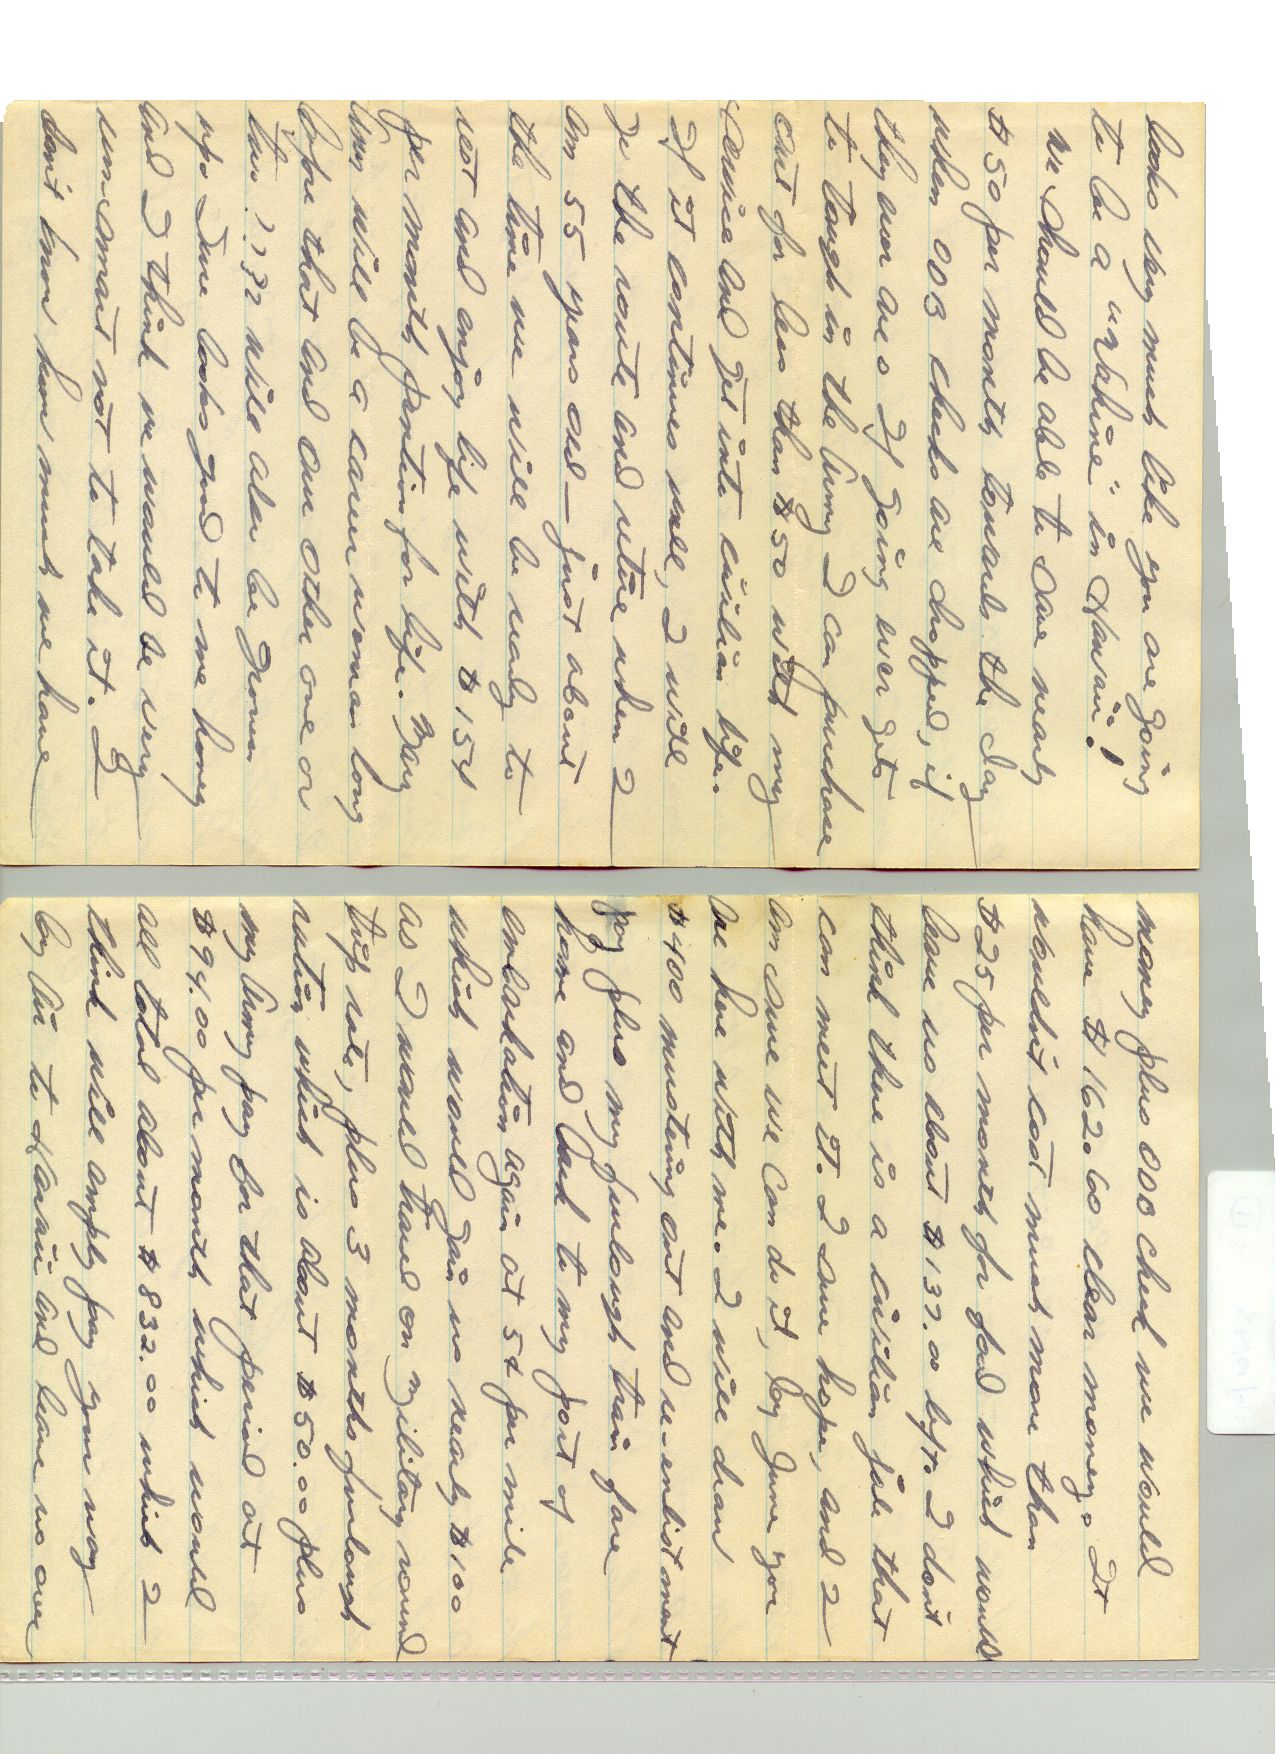 looks very much like you are going
to be a "wahine" in Hawaii!
We should be able to save nearly
$50 per month towards the day
when OOB checks are chopped, if
they ever are & If going ever gets
to tough in the Army I can purchase
out for less than $50 with my
service and get into civilian life.
If it continues well, I will
go the route and retire when I
am 55 years old – just about
the time we will be ready to
rest and enjoy life with $154
per month pension for life. Mary
Amy will be a career woman long
before that and our other one or
two??? will also be grown
up. Sure looks good to me honey
and I think we would be very
unsmart not to take it. I
don't know how much we have
money plus OOB check we would
have $162.60 clear money. It
wouldn't cost much more than
$25 per month for food which would
leave us about $137.00 left. I don't
think there is a civilian job that
can meet it. I sure hope, and I
am sure we can do it, by June you
be here with me. I will draw
$400 mustering out and re-enlistment
pay plus my furlough train fare
home and back to my port of
embarkation again at 5¢ per mile
which would gain us nearly $100
as I would travel on military round
trip rate, plus 3 months furlough
ration which is about $50.00 plus
my Army pay for that period at
$94.00 per month which would
all total about $832.00 which I
think will amply pay your way
by air to Hawaii and leave us over